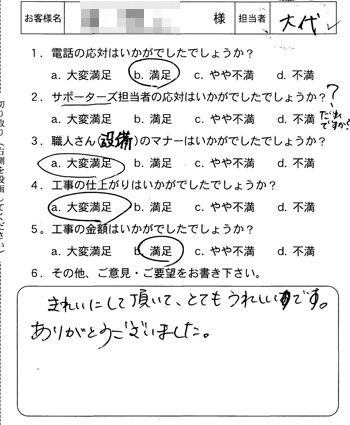 お客様名 様 担当者 大代
1．電話の応対はいかがでしたでしょうか？
a. 大変満足 b. 満足 c. やや不満 d. 不満
2．サポーターズ担当者の応対はいかがでしたでしょうか？
a. 大変満足 b. 満足 c. やや不満 d. 不満 ？だれですか？
3．職人さん（設備）のマナーはいかがでしたでしょうか？
a. 大変満足 b. 満足 c. やや不満 d. 不満
4．工事の仕上がりはいかがでしたでしょうか？
a. 大変満足 b. 満足 c. やや不満 d. 不満
5．工事の金額はいかがでしたでしょうか？
a. 大変満足 b. 満足 c. やや不満 d. 不満
6．その他、ご意見・ご要望をお書き下さい。
きれいにして頂いて、とてもうれしいです。
ありがとうございました。